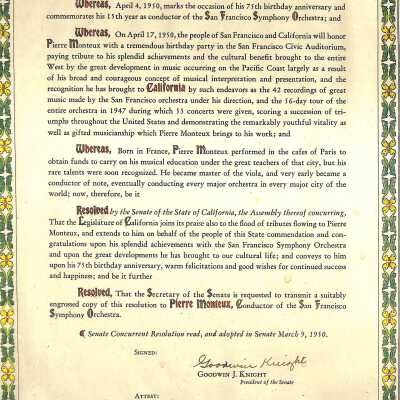 Whereas, April 4, 1950, marks the occasion of his 75th birthday anniversary and
commemorates his 15th year as conductor of the San Francisco Symphony Orchestra; and
Whereas, On April 17, 1950, the people of San Francisco and California will honor
Pierre Monteux with a tremendous birthday party in the San Francisco Civic Auditorium,
paying tribute to his splendid achievements and the cultural benefit brought to the entire
West by the great development in music occurring on the Pacific Coast largely as a result
of his broad and courageous concept of musical interpretation and presentation, and the
recognition he has brought to California by such endeavors as the 42 recordings of great
music made by the San Francisco orchestra under his direction, and the 56-day tour of the
entire orchestra in 1947 during which 53 concerts were given, scoring a succession of tri-
umphs throughout the United States and demonstrating the remarkably youthful vitality as
well as gifted musicianship which Pierre Monteux brings to his work; and
Whereas, Born in France, Pierre Monteux performed in the cafes of Paris to
obtain funds to carry on his musical education under the great teachers of that city, but his
rare talents were soon recognized. He became master of the viola, and very early became a
conductor of note, eventually conducting every major orchestra in every major city of the
world; now, therefore, be it
Resolved by the Senate of the State of California, the Assembly thereof concurring,
That the Legislature of California joins its praise also to the flood of tributes flowing to Pierre
Monteux, and extends to him on behalf of the people of this State commendation and con-
gratulations upon his splendid achievements with the San Francisco Symphony Orchestra
and upon the great developments he has brought to our cultural life; and conveys to him
upon his 75th birthday anniversary, warm felicitations and good wishes for continued success
and happiness; and be it further
Resolved, That the Secretary of the Senate is requested to transmit a suitably
engrossed copy of this resolution to Pierre Monteux, Conductor of the San Francisco
Symphony Orchestra.
Senate Concurrent Resolution read, and adopted in Senate March 9, 1950.
Signed:
Goodwin Knight
Goodwin J. Knight
President of the Senate
Attest: